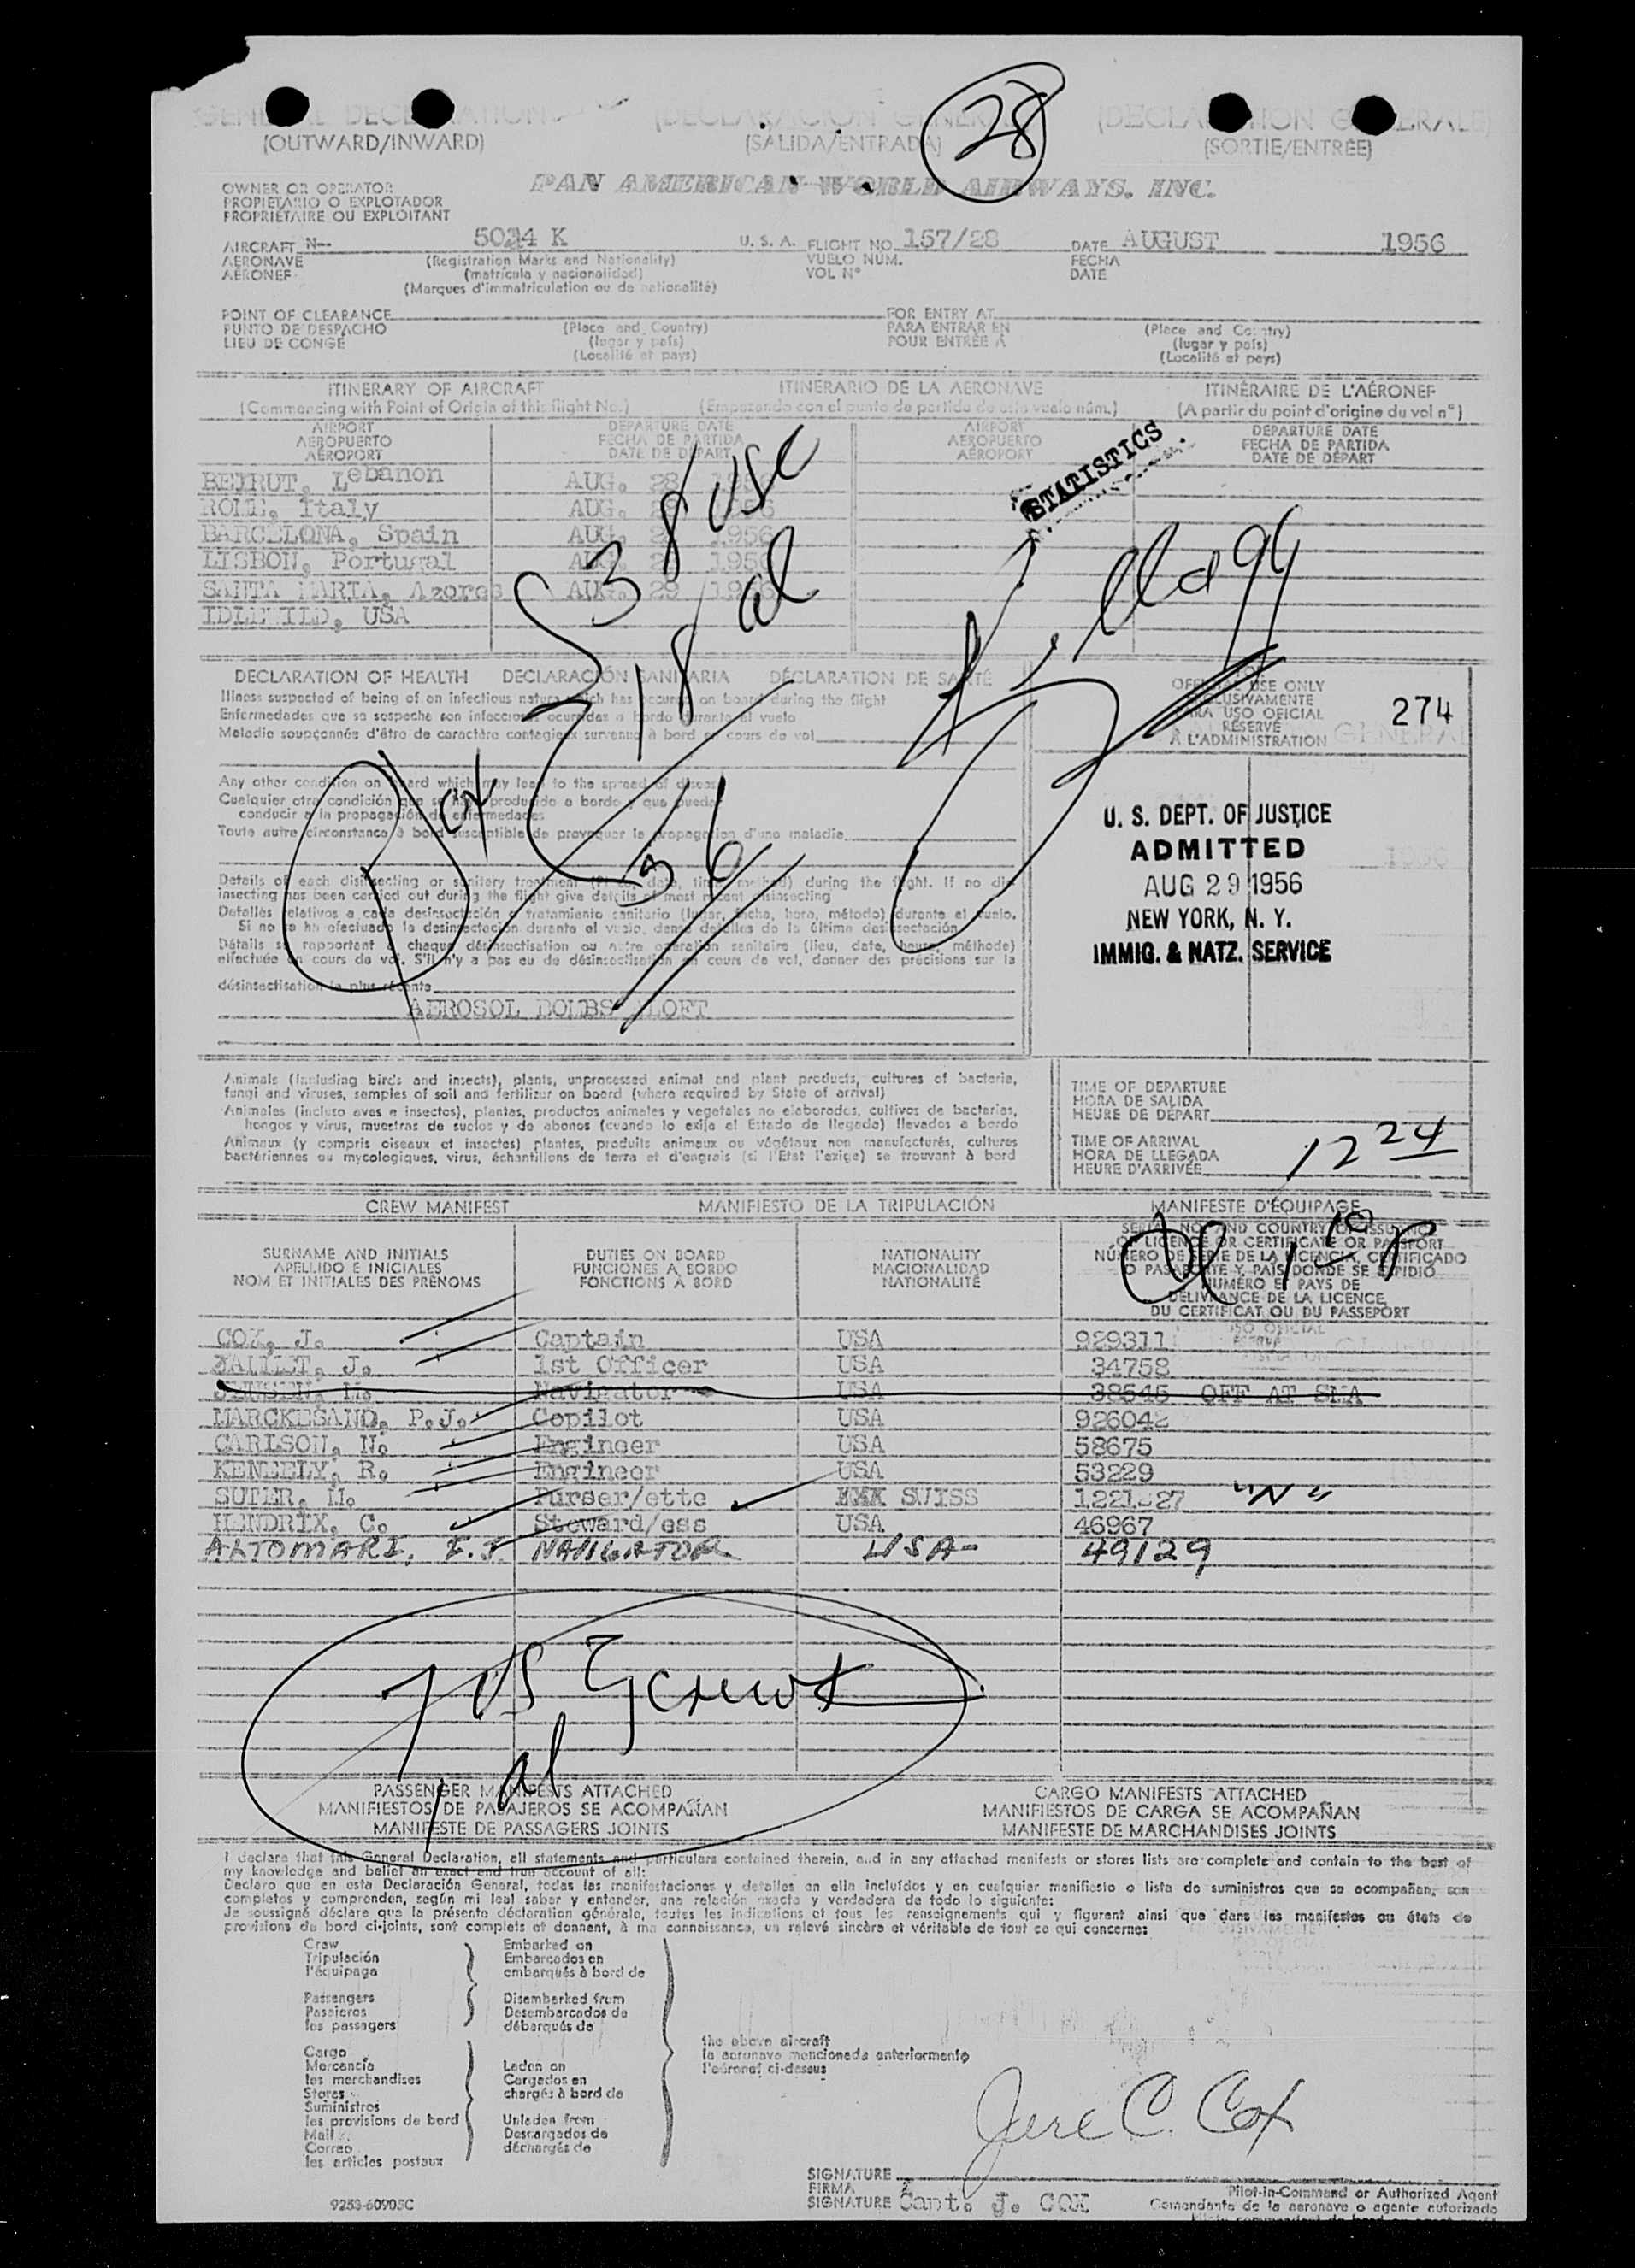 GENERAL DECLARATION (DECLARACION GENERAL) (DECLARATION GENERALE)
(OUTWARD/INWARD) (SALIDA/ENTRADA) (SORTIE/ENTRÉE)
28
OWNER OR OPERATOR PAN AMERICAN WORLD AIRWAYS, INC.
PROPIETARIO O EXPLOTADOR
PROPRIÉTAIRE OU EXPLOITANT
AIRCRAFT N- 5024 K U. S. A. FLIGHT NO. 157/28 DATE AUGUST 1956
AERONAVE (Registration Marks and Nationality) VUELO NÚM. FECHA
AÉRONEF (matrícula y nacionalidad) VOL Nº DATE
(Marques d'immatriculation ou de nationalité)
POINT OF CLEARANCE FOR ENTRY AT
PUNTO DE DESPACHO (Place and Country) PARA ENTRAR EN (Place and Country)
LIEU DE CONGÉ (lugar y país) POUR ENTRÉE À (lugar y país)
(Localité et pays) (Localité et pays)
ITINERARY OF AIRCRAFT ITINERARIO DE LA AERONAVE ITINÉRAIRE DE L'AÉRONEF
(Commencing with Point of Origin of this flight No.) (Empezando con el punto de partida de este vuelo núm.) (A partir du point d'origine du vol nº)
AIRPORT DEPARTURE DATE AIRPORT DEPARTURE DATE
AEROPUERTO FECHA DE PARTIDA AEROPUERTO FECHA DE PARTIDA
AÉROPORT DATE DE DÉPART AÉROPORT DATE DE DÉPART
STATISTICS
BEIRUT, Lebanon AUG. 28 1956
ROME, Italy AUG. 1956
BARCELONA, Spain AUG. 1956
LISBON, Portugal AUG. 1956
SANTA MARIA, Azores AUG. 29 1956
IDLEWILD, USA
DECLARATION OF HEALTH DECLARACIÓN SANITARIA DÉCLARATION DE SANTÉ
Illness suspected of being of an infectious nature which has occurred on board during the flight
Enfermedades que se sospeche son infecciosas ocurridas a bordo durante el vuelo
Maladie soupçonnée d'être de caractère contagieux survenue à bord en cours de vol
OFFICIAL USE ONLY
EXCLUSIVAMENTE
PARA USO OFICIAL
RÉSERVÉ
À L'ADMINISTRATION
274
Any other condition on board which may lead to the spread of disease
Cualquier otra condición que se haya producido a bordo y que pueda
conducir a la propagación de enfermedades
Toute autre circonstance à bord susceptible de provoquer la propagation d'une maladie
U. S. DEPT. OF JUSTICE
ADMITTED
AUG 29 1956
NEW YORK, N. Y.
IMMIG. & NATZ. SERVICE
Details of each disinsecting or sanitary treatment (place, date, time, method) during the flight. If no dis-
insecting has been carried out during the flight give details of most recent disinsecting
Detalles relativos a cada desinsectación o tratamiento sanitario (lugar, fecha, hora, método) durante el vuelo.
Si no se ha efectuado la desinsectación durante el vuelo, dense detalles de la última desinsectación
Détails se rapportant à chaque désinsectisation ou autre opération sanitaire (lieu, date, heure, méthode)
effectuée en cours de vol. S'il n'y a pas eu de désinsectisation en cours de vol, donner des précisions sur la
désinsectisation la plus récente
AEROSOL BOMBS ALOFT
Animals (including birds and insects), plants, unprocessed animal and plant products, cultures of bacteria,
fungi and viruses, samples of soil and fertilizer on board (where required by State of arrival)
Animales (incluso aves e insectos), plantas, productos animales y vegetales no elaborados, cultivos de bacterias,
hongos y virus, muestras de suelos y de abonos (cuando lo exija el Estado de llegada) llevados a bordo
Animaux (y compris oiseaux et insectes) plantes, produits animaux ou végétaux non manufacturés, cultures
bactériennes ou mycologiques, virus, échantillons de terra et d'engrais (si l'État l'exige) se trouvant à bord
TIME OF DEPARTURE
HORA DE SALIDA
HEURE DE DÉPART
TIME OF ARRIVAL
HORA DE LLEGADA 1224
HEURE D'ARRIVÉE
CREW MANIFEST MANIFIESTO DE LA TRIPULACIÓN MANIFESTE D'ÉQUIPAGE
SURNAME AND INITIALS DUTIES ON BOARD NATIONALITY
APELLIDO E INICIALES FUNCIONES A BORDO NACIONALIDAD
NOM ET INITIALES DES PRÉNOMS FONCTIONS À BORD NATIONALITÉ
SERIAL NO. AND COUNTRY OF ISSUANCE
OF LICENCE OR CERTIFICATE OR PASSPORT
NÚMERO DE SERIE DE LA LICENCIA, CERTIFICADO
O PASAPORTE Y PAÍS DONDE SE EXPIDIÓ
NUMÉRO ET PAYS DE
DÉLIVRANCE DE LA LICENCE,
DU CERTIFICAT OU DU PASSEPORT
COX, J. Captain USA 929311
J. 1st Officer USA 34758
Navigator USA 38546 OFF AT SMA
MARCKESANO, P.J. Copilot USA 926042
CARLSON, N. Engineer USA 58675
KENEELY, R. Engineer USA 53229
SUTER, M. Purser/ette SUISS
HENDRIX, C. Steward/ess USA 46967
ALTOMARI, E.J. NAVIGATOR USA- 49129
PASSENGER MANIFESTS ATTACHED CARGO MANIFESTS ATTACHED
MANIFIESTOS DE PASAJEROS SE ACOMPAÑAN MANIFIESTOS DE CARGA SE ACOMPAÑAN
MANIFESTE DE PASSAGERS JOINTS MANIFESTE DE MARCHANDISES JOINTS
I declare that this General Declaration, all statements and particulars contained therein, and in any attached manifests or stores lists are complete and contain to the best of
my knowledge and belief an exact and true account of all:
Declaro que en esta Declaración General, todas las manifestaciones y detalles en ella incluídos y en cualquier manifiesto o lista de suministros que se acompañan, son
completos y comprenden, según mi leal saber y entender, una relación exacta y verdadera de todo lo siguiente:
Je soussigné déclare que la présente déclaration générale, toutes les indications et tous les renseignements qui y figurent ainsi que dans les manifestes ou états de
provisions de bord ci-joints, sont complets et donnent, à ma connaissance, un relevé sincère et véritable de tout ce qui concerne:
Crew Embarked on
Tripulación Embarcados en
l'équipage embarqués à bord de
Passengers Disembarked from
Pasajeros Desembarcados de
les passagers débarqués de
the above aircraft
la aeronave mencionada anteriormente
l'aéronef ci-dessus
Cargo
Mercancía Laden on
les marchandises Cargados en
Stores chargés à bord de
Suministros
les provisions de bord Unladen from
Mail Descargados de
Correo déchargés de
les articles postaux
Jere C. Cox
SIGNATURE
FIRMA Pilot-in-Command or Authorized Agent
SIGNATURE Capt. J. COX Comandante de la aeronave o agente autorizado
9253-60905C